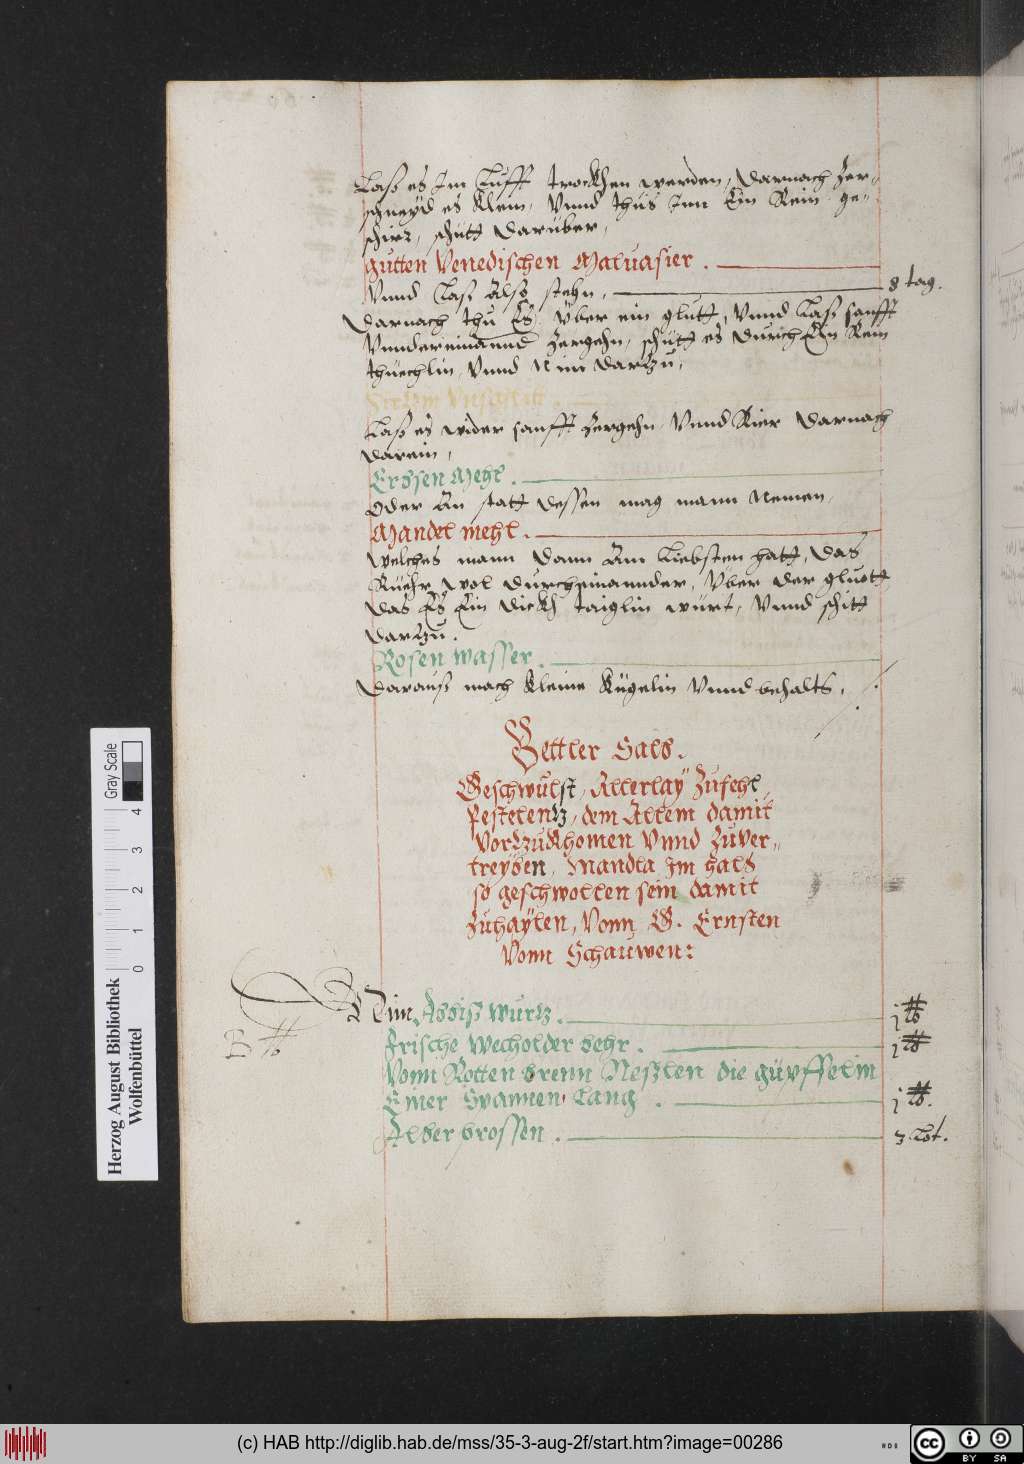 Laß es Im Lufft trockhen werden, Darnach Zer-
schneyd es klein, Vnnd thus Inn Ein Rein ge-
schirz, schütt Darüber,
gutten Venedischen Maluasier.
Vnnd Laß Also stehn, 8 tag.
Darnach thu Es Vber ein glutt, Vnnd Laß sanfft
Vnndereinannd Zergehn, schütt es Durich Ein Rein
thüechlin, Vnnd Nim Dartzu,
Laß es wider sanfft Zergehn, Vnnd Rier Darnach
Darein,
Erbsen Mehl.
Oder An statt Dessen mag mann Nemen,
Mandel mehl.
Welches mann Dann Am Liebsten hatt, Das
Rüehr wol Durcheinannder, Vber Der gluott
Das Es Ein Dickh taiglin würt, Vnnd schitt
Dartzu.
Rosen wasser.
Darauß mach Kleine Kügelin Vnnd behalts,
Bettler Salb.
Geschwulst, Allerlay Zufehl,
Pestelentz, dem Allem damit
Vortzukhomen Vnnd Zuver-
treyben, Mandla Im Hals
so geschwollen sein damit
Zuhaylen, Vonn G. Ernsten
Vonn Schauwen:
Nim Abbiß wurtz. j ℔
Frische Wecholder behr. j ℔
Vonn Rotten brenn Neßlen die güpffelin
Einer Spannen Lang. j ℔.
Alber brossen. 3 Lot.
B ℔
Herzog August Bibliothek
Wolfenbüttel
0 1 2 3 4
Gray Scale
(c) HAB http://diglib.hab.de/mss/35-3-aug-2f/start.htm?image=00286
cc BY SA